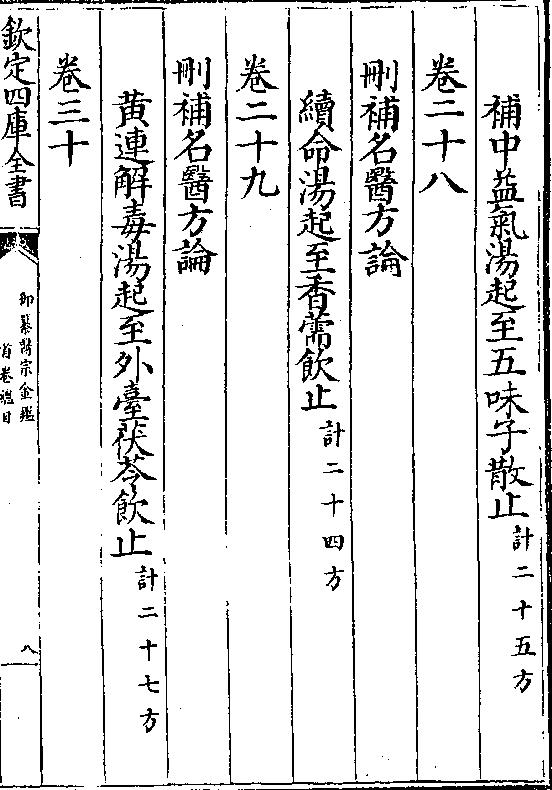 補中益氣湯起至五味子散止計二十五方
卷二十八
刪補名醫方論
續命湯起至香薷飲止計二十四方
卷二十九
刪補名醫方論
黃連解毒湯起至外臺茯苓飲止計二十七方
卷三十
欽定四庫全書
御纂醫宗金鑑
首卷總目
八